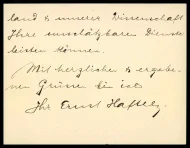 land & unserer Wissenschaft
Ihre unschätzbaren Dienste
leisten können.
Mit herzlichen & ergebe-
nen Grüssen bin ich
Ihr Ernst